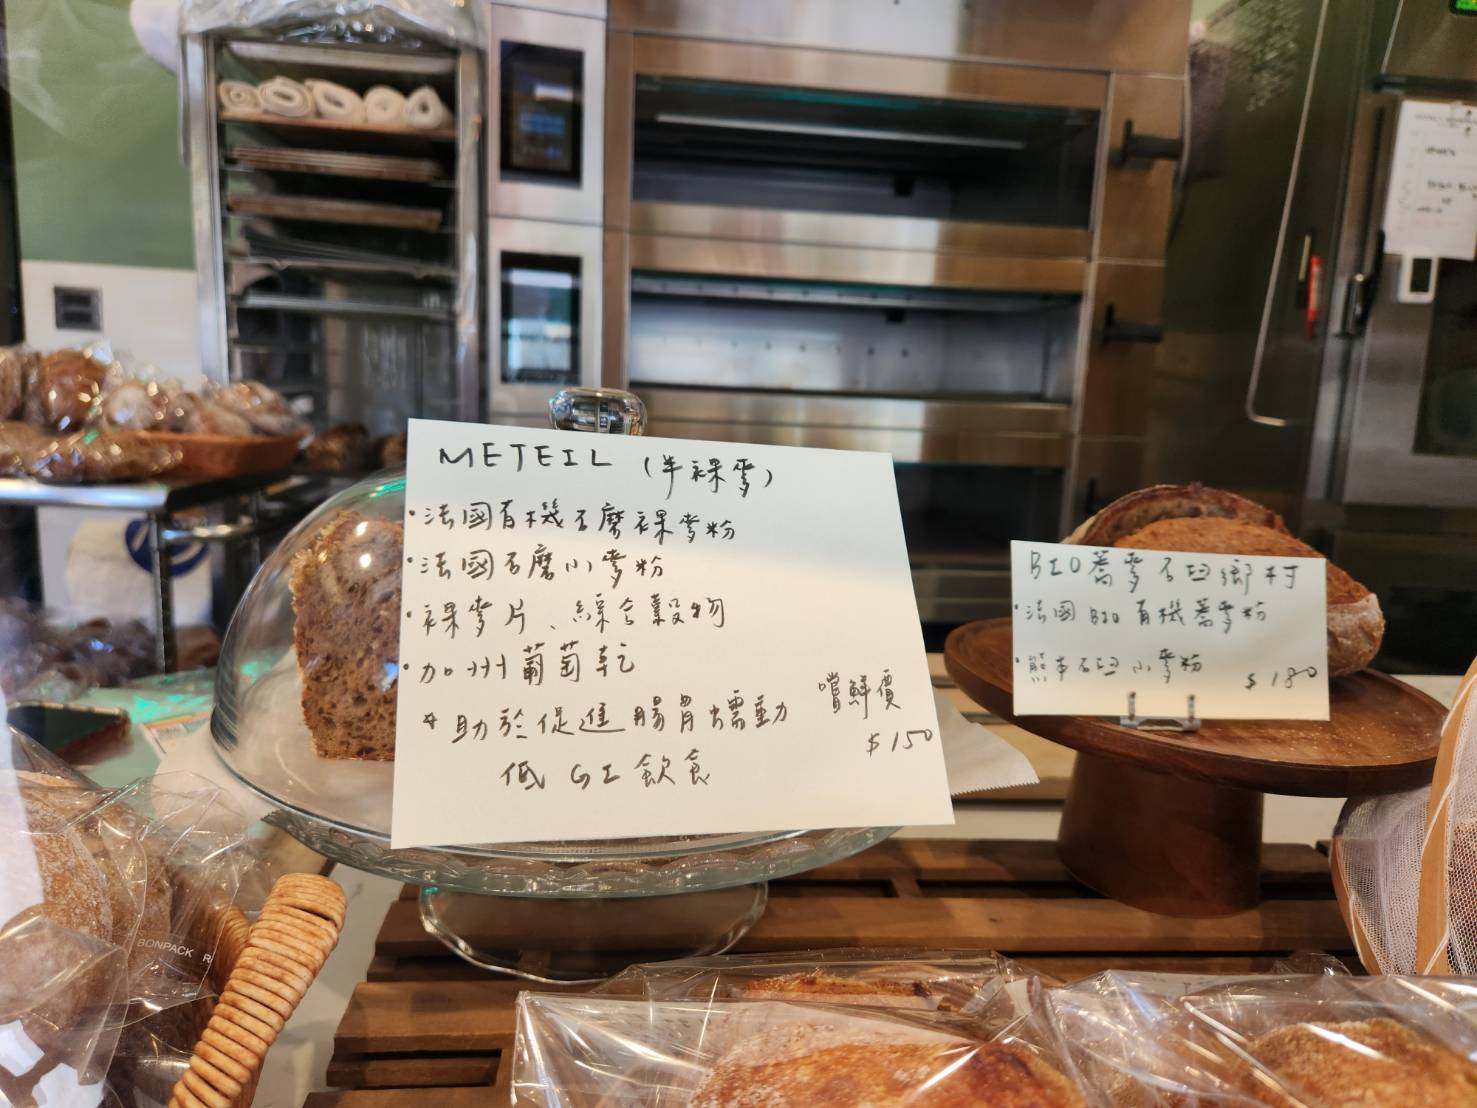 METEIL (半裸麥)
·法國有機石磨裸麥粉
·法國石磨小麥粉
·裸麥片、綜合穀物
·加州葡萄乾
*助於促進腸胃蠕動
低 GI 飲食
嚐鮮價
$150
BIO蕎麥石臼鄉村
·法國 BIO 有機蕎麥粉
·熊本石臼小麥粉
$180
BONPACK R